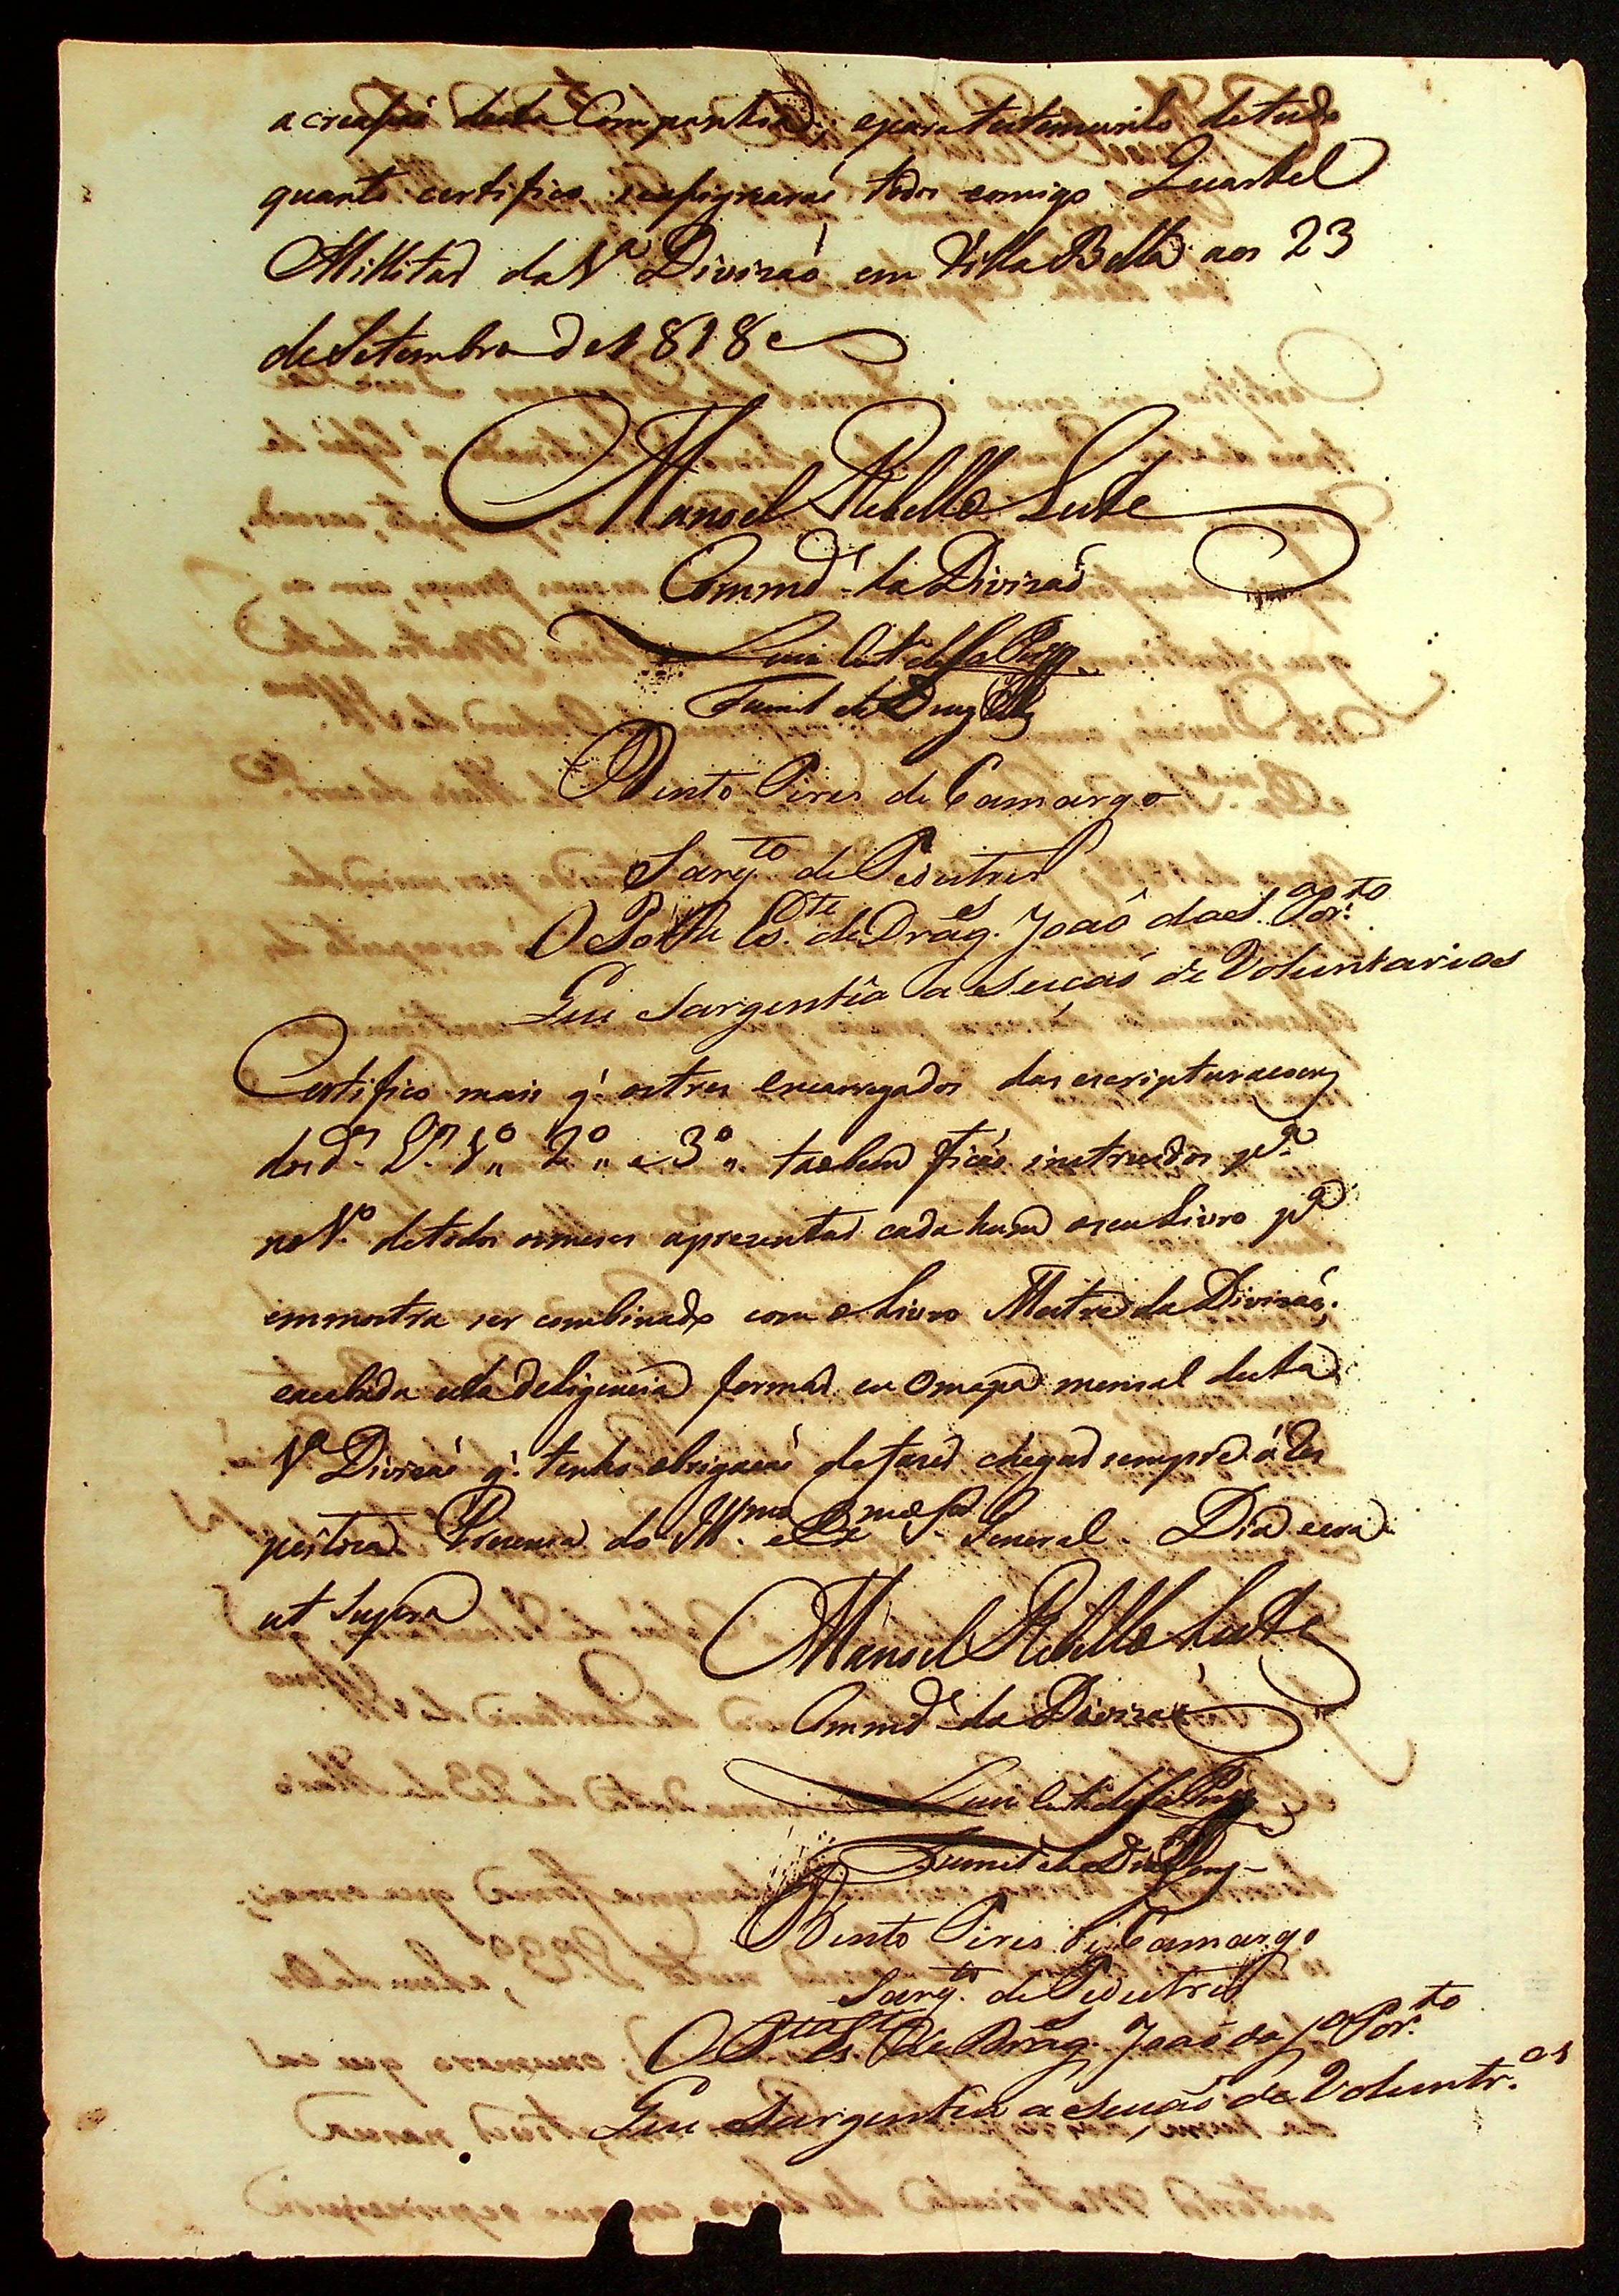 acreação desta Companhia; epara testemunho detudo
quanto certifico seasignaraó todos comigo Quartel
Millitar da 1ª Divizaó em Villa Bella aos 23
de Setembro de 1818
Manoel Rebello Leite
Commd.e da Divizaó
Luis
de
Bento Pires de Camargo
Sarg.to de Pedestres
O Porta Es.te de Drag.es Joaõ da S.a Por.to
Que Sargentêa a Secaó de Voluntarios
Certifico mais q. os tres encarregados das escripturacoens
dos d.os L.os 1º 2º e 3º taobem ficaó instruidos p.a
no 1º de todos os meses aprezentar cada hum o seu Livro p.a
em mostra ser combinado com o Livro Mestre da Divizaó;
eacabada esta deligencia formar eu o mapa mensal desta
1ª Divizaó q. tenho obrigacaó de fazer chegar sempre á Res
peitosa Prezenca do Ill.mo e Ex.mo Snr. General. Dia eera
ut supra
Manoel Rebello Leite
Commd.e da Divizaó
Luis
de
Bento Pires de Camargo
Sarg.to de Pedestres
O Porta Es.te de Drag.es Joaõ da S.a Por.to
Que Sargentêa a Secaó de Voluntr.os